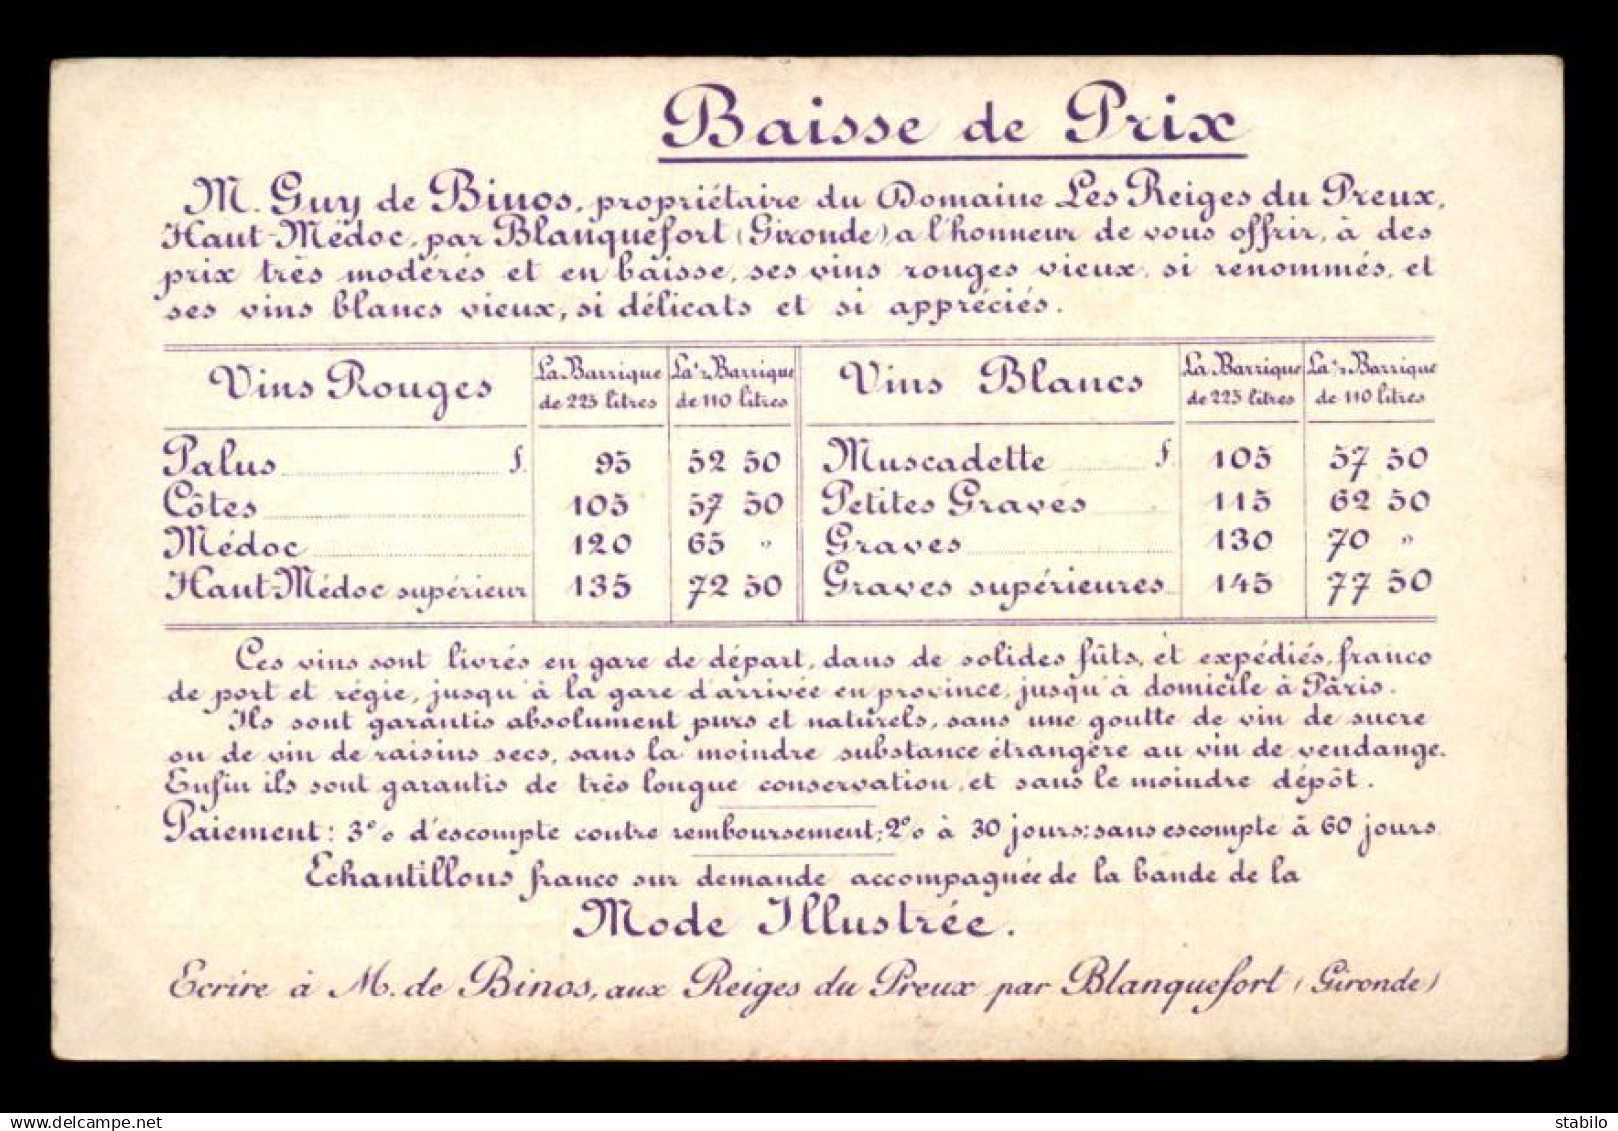 Baisse de Prix
M. Guy de Binos, propriétaire du Domaine Les Reiges du Preux,
Haut-Médoc, par Blanquefort (Gironde), a l'honneur de vous offrir, à des
prix très modérés et en baisse, ses vins rouges vieux, si renommés, et
ses vins blancs vieux, si délicats et si appréciés.
Vins Rouges La Barrique de 225 litres La ½ Barrique de 110 litres Vins Blancs La Barrique de 225 litres La ½ Barrique de 110 litres
Palus f. 95 52 50 Muscadette f 105 57 50
Côtes 105 57 50 Petites Graves 115 62 50
Médoc 120 65 » Graves 130 70 »
Haut-Médoc supérieur 135 72 50 Graves supérieures 145 77 50
Ces vins sont livrés en gare de départ, dans de solides fûts, et expédiés, franco
de port et régie, jusqu'à la gare d'arrivée en province, jusqu'à domicile à Paris.
Ils sont garantis absolument purs et naturels, sans une goutte de vin de sucre
ou de vin de raisins secs, sans la moindre substance étrangère au vin de vendange.
Enfin ils sont garantis de très longue conservation, et sans le moindre dépôt.
Paiement: 3% d'escompte contre remboursement; 2% à 30 jours; sans escompte à 60 jours.
Echantillons franco sur demande accompagnée de la bande de la
Mode Illustrée.
Ecrire à M. de Binos, aux Reiges du Preux par Blanquefort (Gironde)
delcampe.net
stabilo